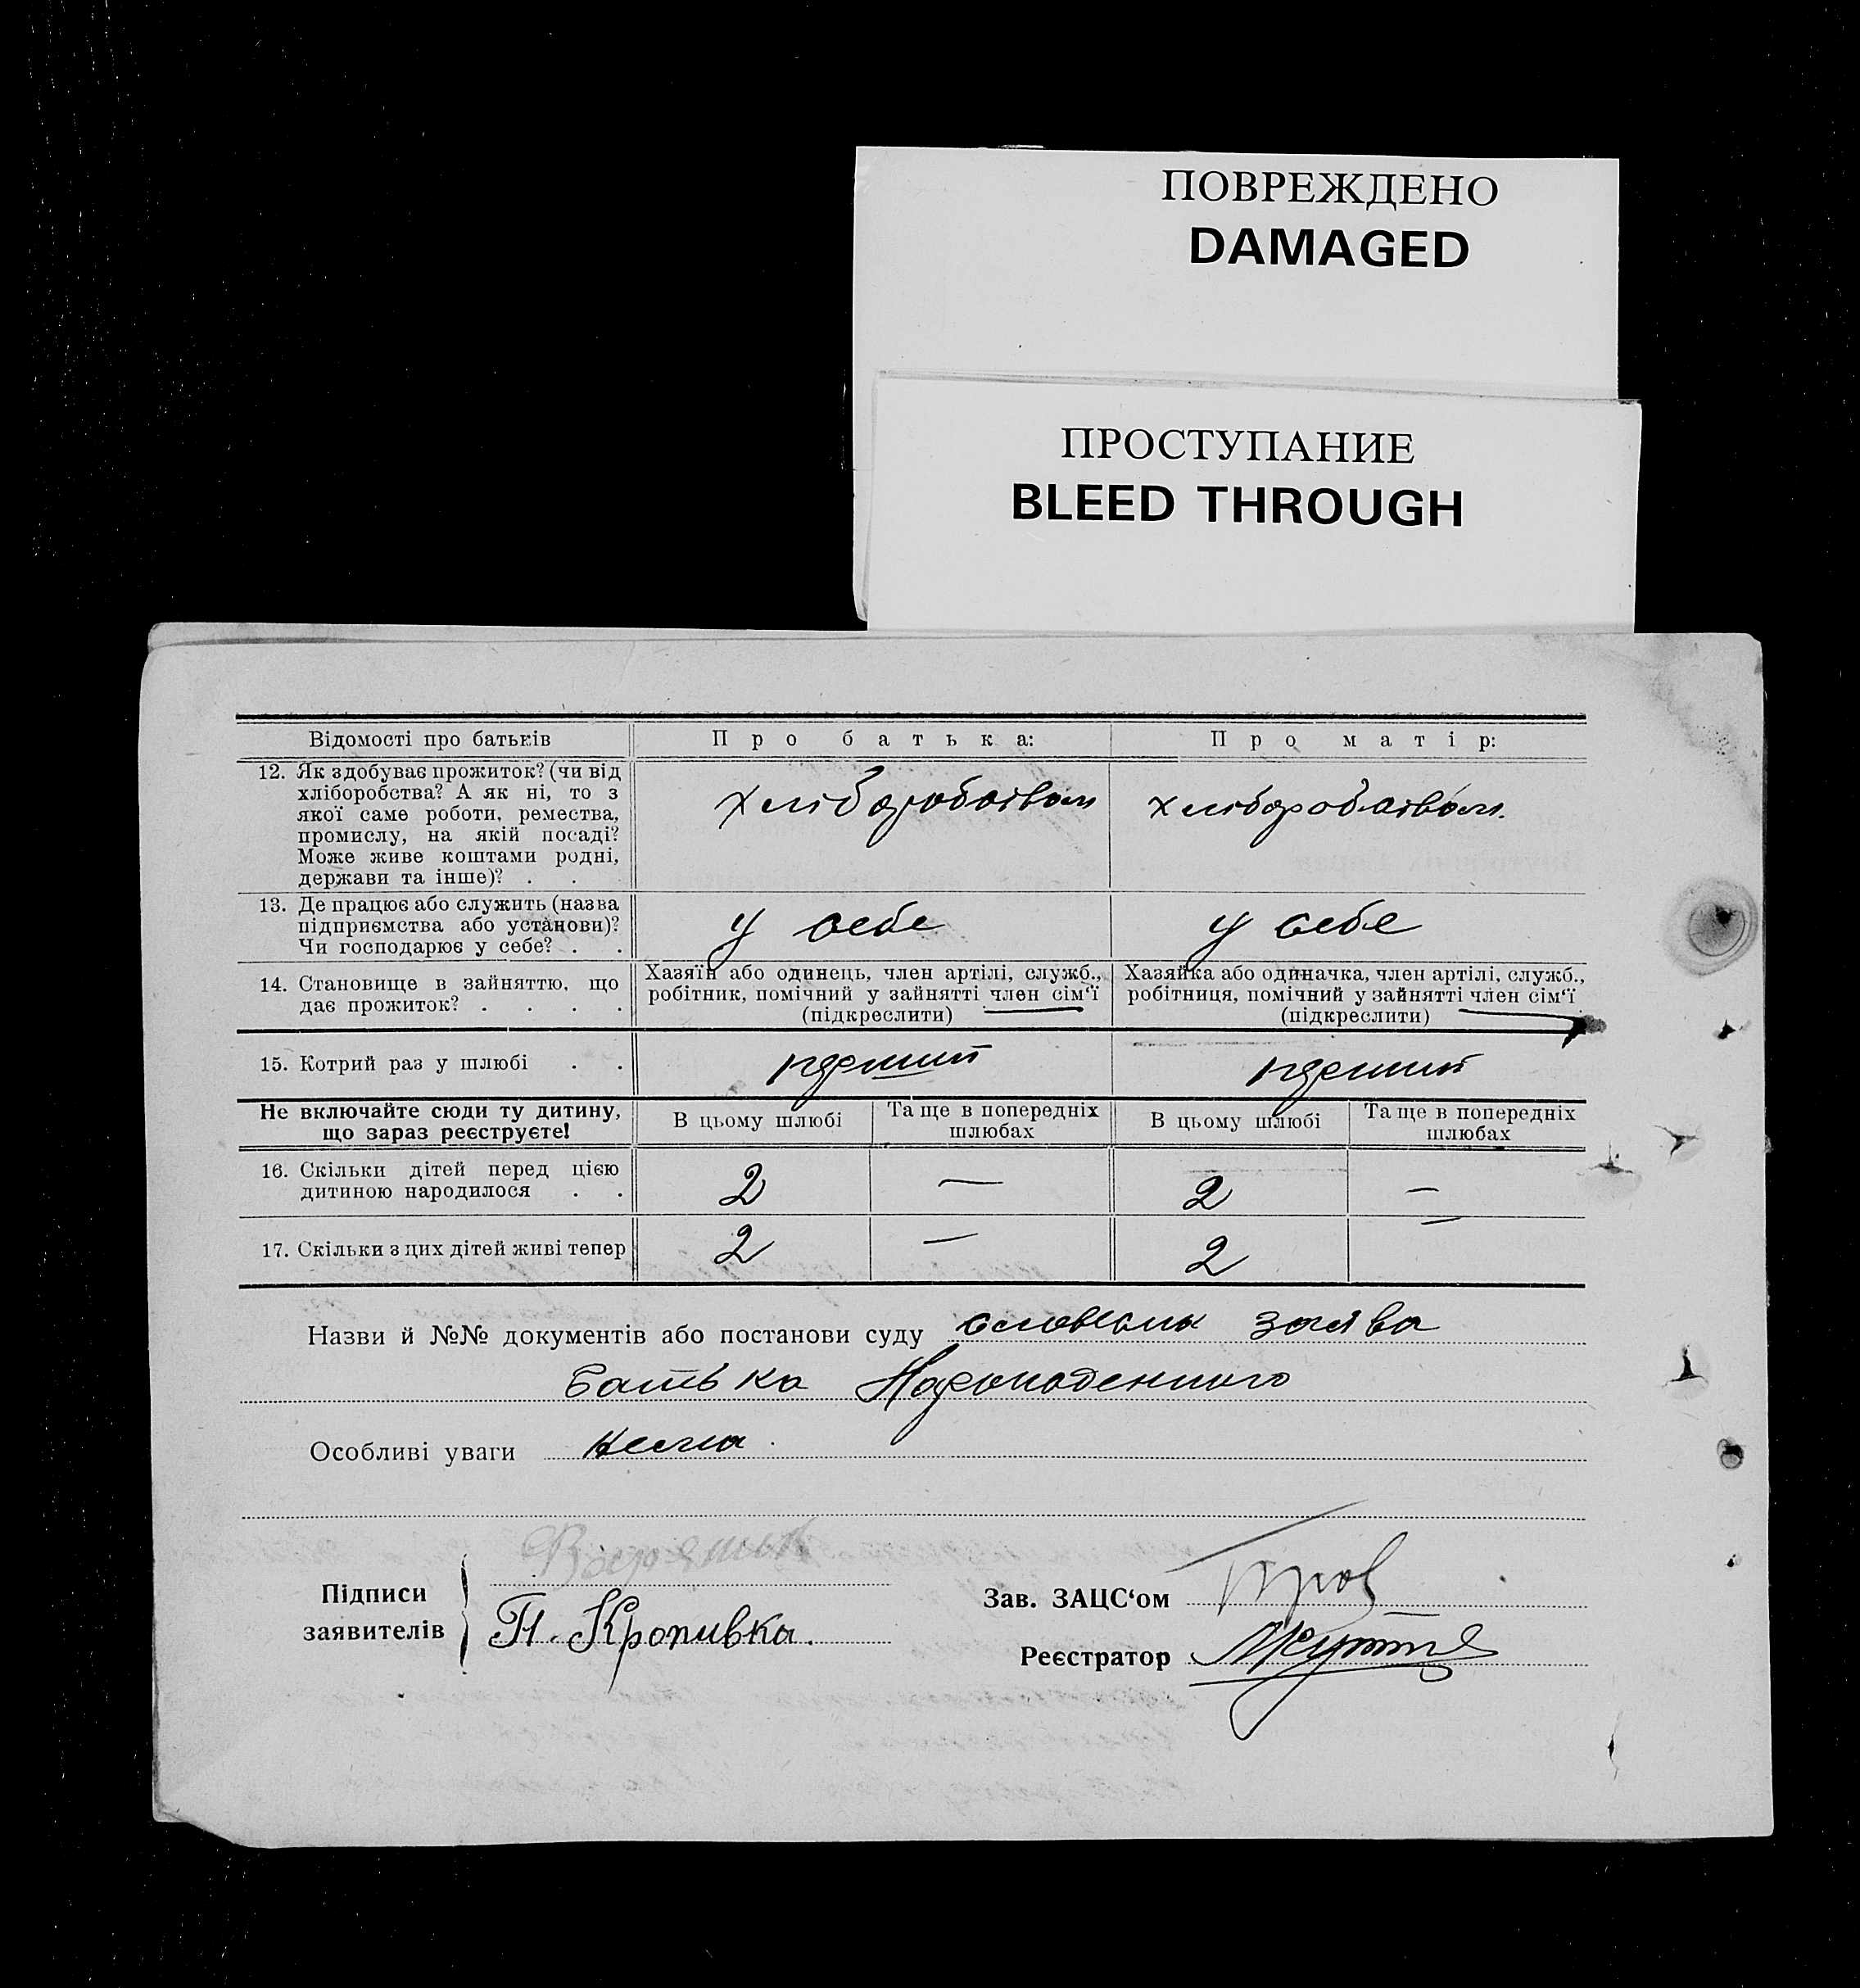 ПОВРЕЖДЕНО
DAMAGED
ПРОСТУПАНИЕ
BLEED THROUGH
Відомості про батьків
Про батька:
Про матір:
12. Як здобуває прожиток? (чи від
хліборобства? А як ні, то з
якої саме роботи, ремества,
промислу, на якій посаді?
Може живе коштами родні,
держави та інше)? . .
хліборобством
хліборобством.
13. Де працює або служить (назва
підприємства або установи)?
Чи господарює у себе? . .
у себе
у себе
14. Становище в зайняттю, що
дає прожиток? . . . .
Хазяїн або одинець, член артілі, служб.,
робітник, помічний у зайнятті член сім‘ї
(підкреслити)
Хазяйка або одиначка, член артілі, служб.,
робітниця, помічний у зайнятті член сім‘ї
(підкреслити)
15. Котрий раз у шлюбі . .
перший
перший
Не включайте сюди ту дитину,
що зараз реєструєте!
В цьому шлюбі
Та ще в попередніх
шлюбах
В цьому шлюбі
Та ще в попередніх
шлюбах
16. Скільки дітей перед цією
дитиною народилося . .
2
—
2
—
17. Скільки з цих дітей живі тепер
2
—
2
—
Назви й №№ документів або постанови суду словесна заява
батька
Особливі уваги нема.
Підписи
заявителів
П. Кропивка.
Зав. ЗАЦС‘ом
Реєстратор